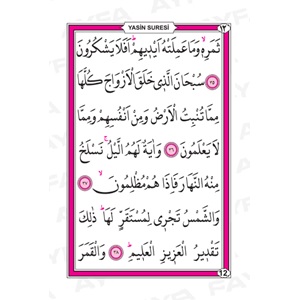 YASİN SURESİ
١٢
ثَمَرِهِۙ وَمَا عَمِلَتْهُ اَيْد۪يهِمْۜ اَفَلَا يَشْكُرُونَ
﴿٣٥﴾ سُبْحَانَ الَّذ۪ي خَلَقَ الْاَزْوَاجَ كُلَّهَا
مِمَّا تُنْبِتُ الْاَرْضُ وَمِنْ اَنْفُسِهِمْ وَمِمَّا
لَا يَعْلَمُونَ ﴿٣٦﴾ وَاٰيَةٌ لَهُمُ الَّيْلُۚ نَسْلَخُ
مِنْهُ النَّهَارَ فَاِذَا هُمْ مُظْلِمُونَۙ ﴿٣٧﴾
وَالشَّمْسُ تَجْر۪ي لِمُسْتَقَرٍّ لَهَاۜ ذٰلِكَ
تَقْد۪يرُ الْعَز۪يزِ الْعَل۪يمِۜ ﴿٣٨﴾ وَالْقَمَرَ
12